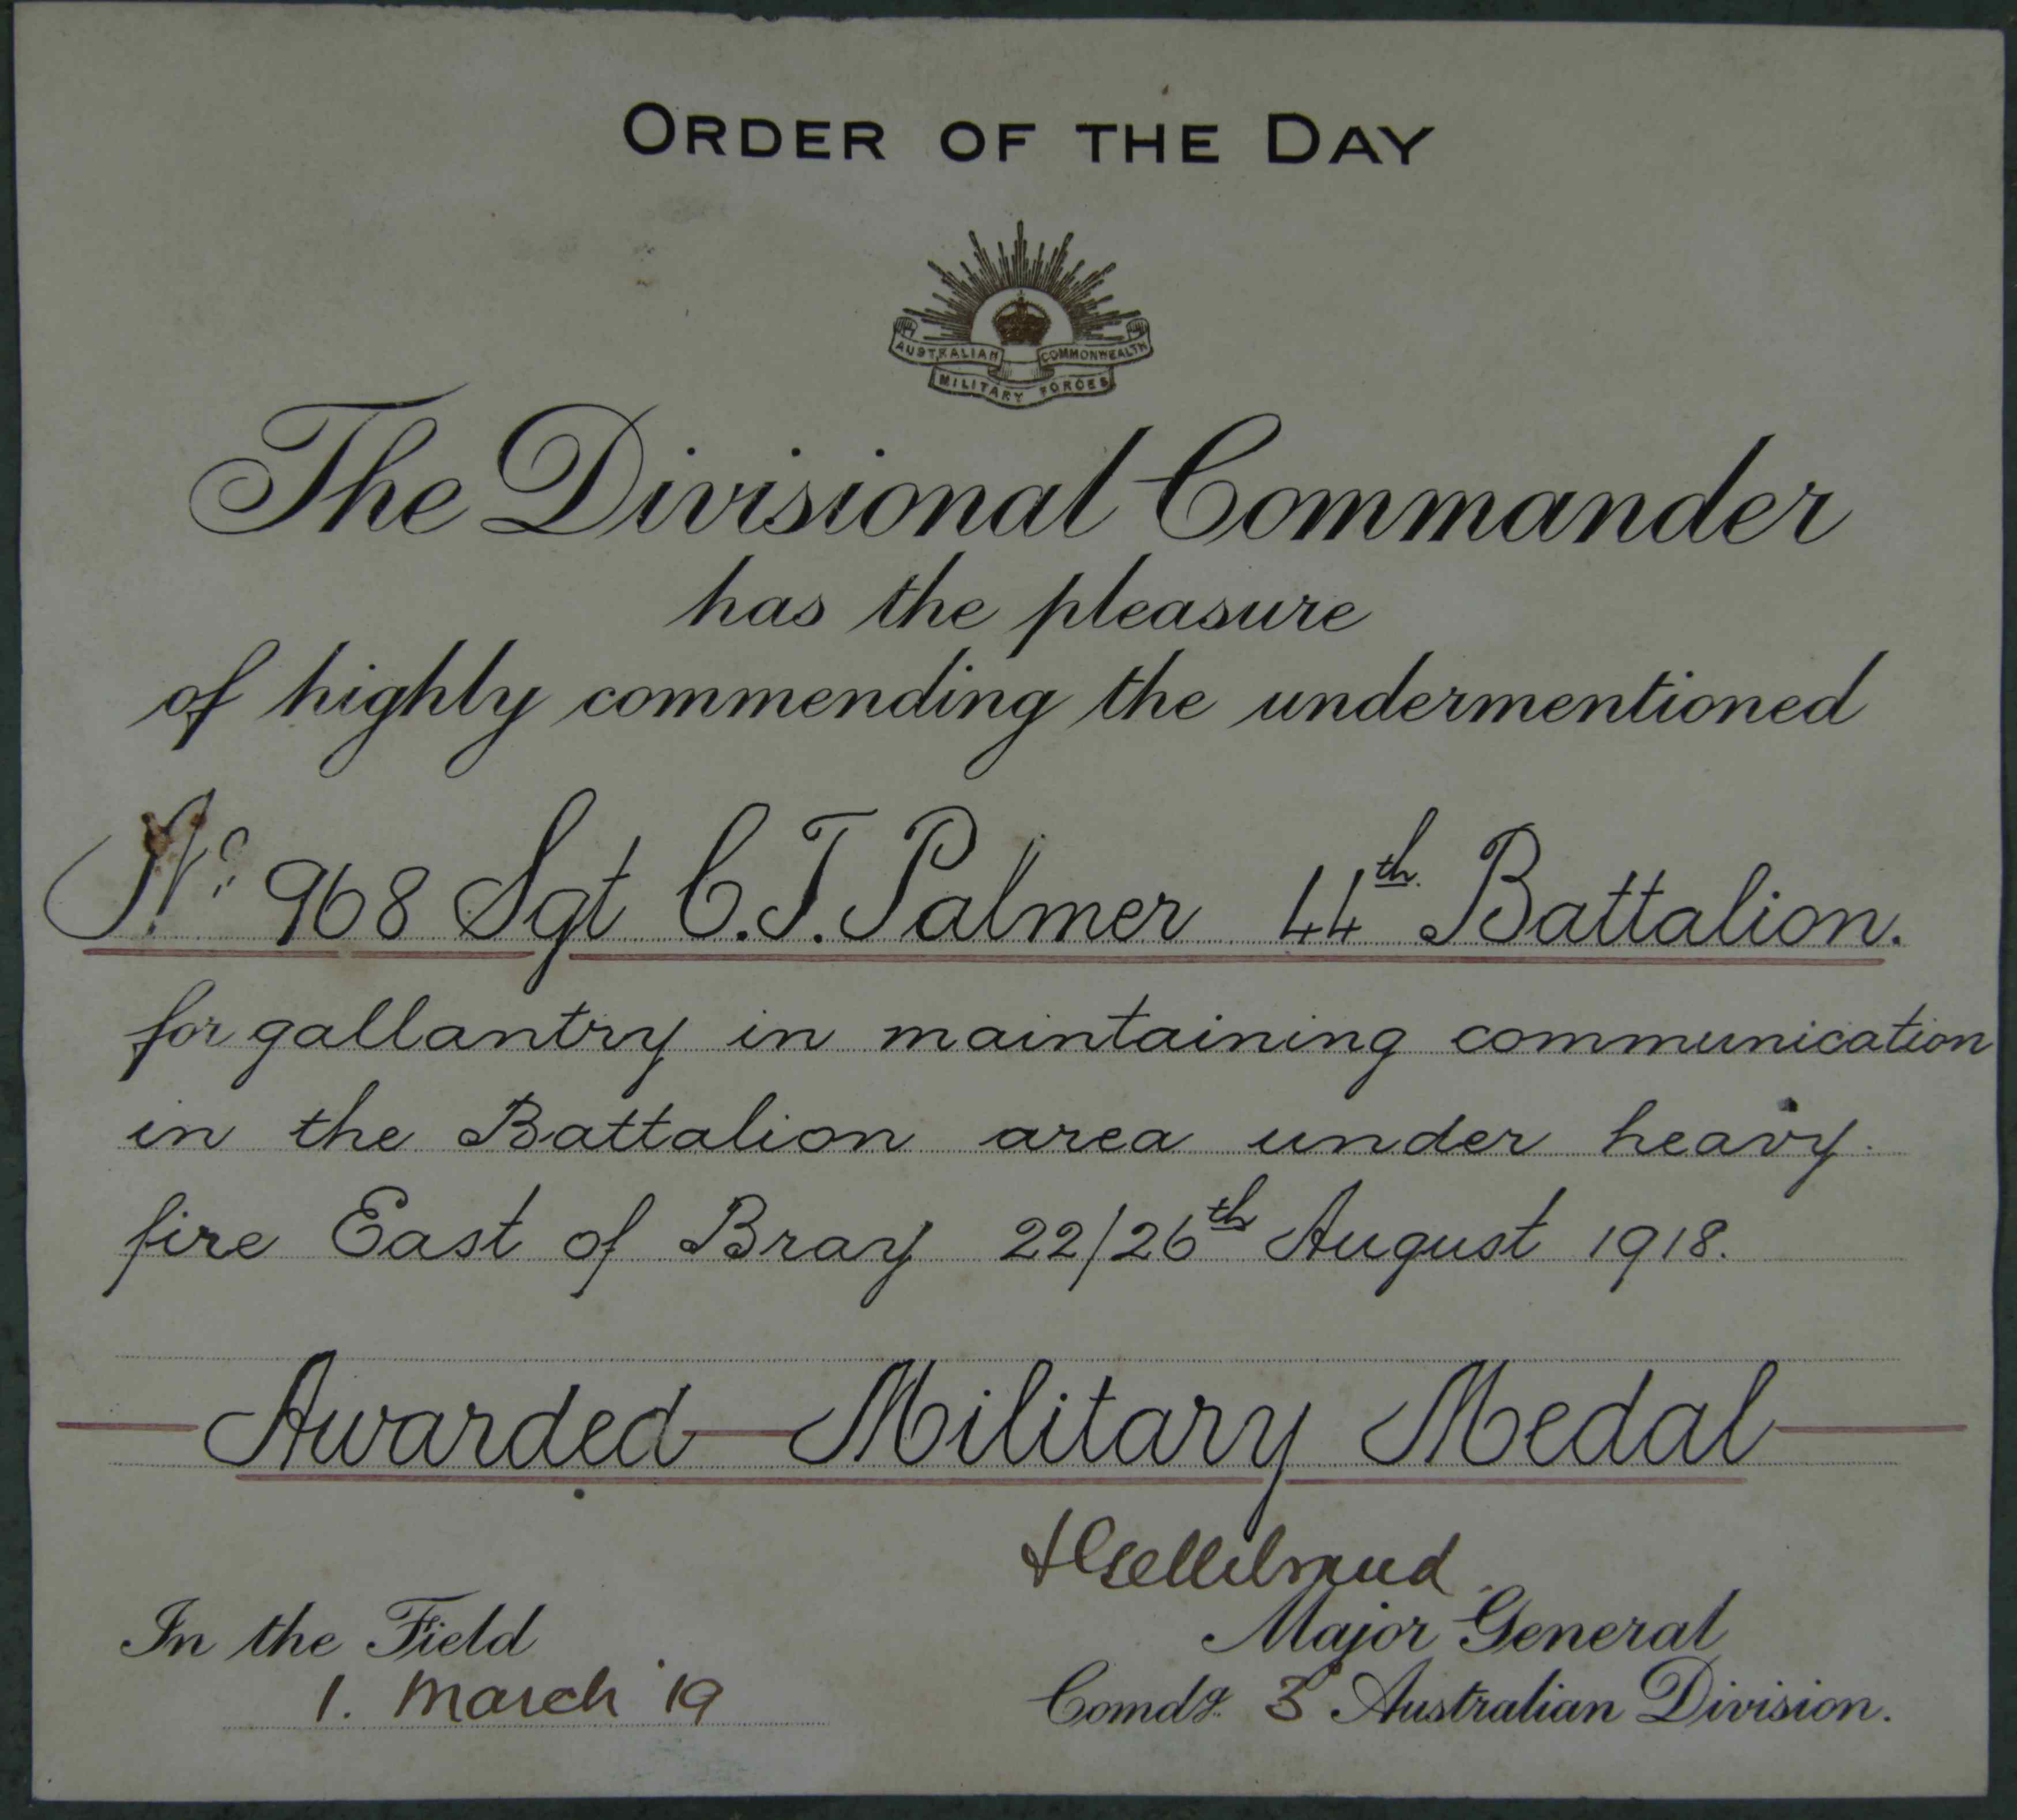 ORDER OF THE DAY
AUSTRALIAN COMMONWEALTH
MILITARY FORCES
The Divisional Commander
has the pleasure
of highly commending the undermentioned
No. 968 Sgt C.T. Palmer 44th Battalion.
for gallantry in maintaining communication
in the Battalion area under heavy
fire East of Bray 22/26th August 1918.
Awarded Military Medal
J Gellibrand
Major General
In the Field
1. March '19
Comdg. 3 Australian Division.